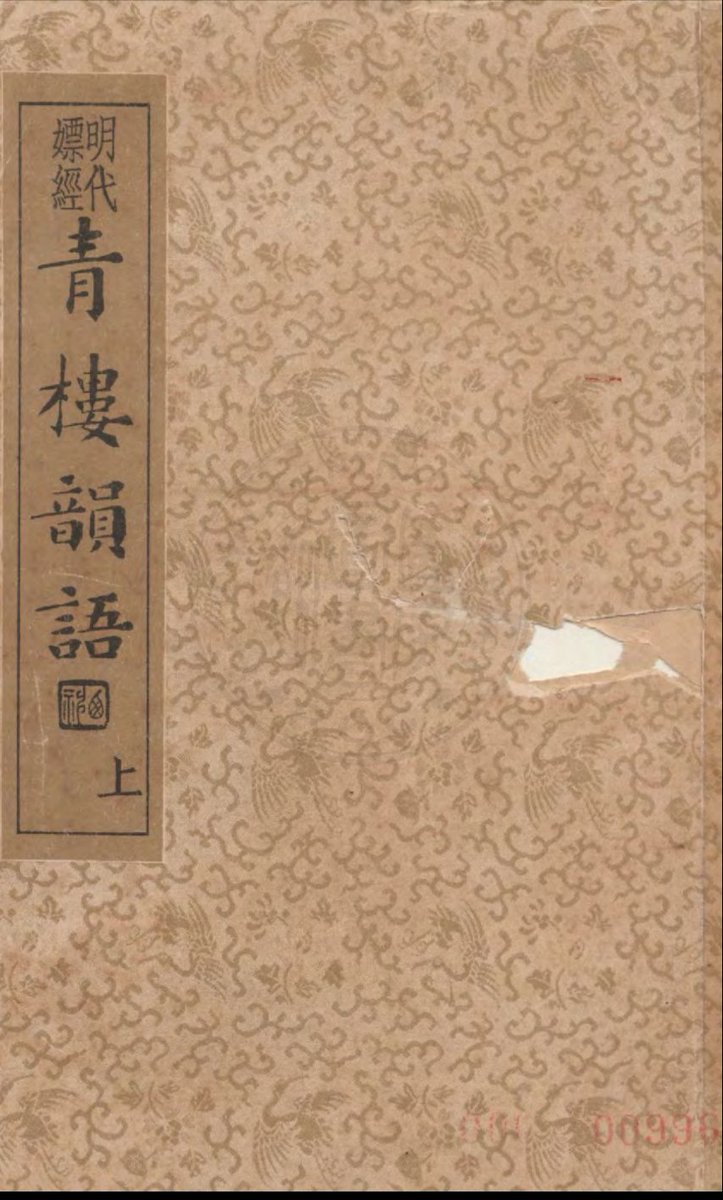 明代
嫖經
青樓韻語
上
00996